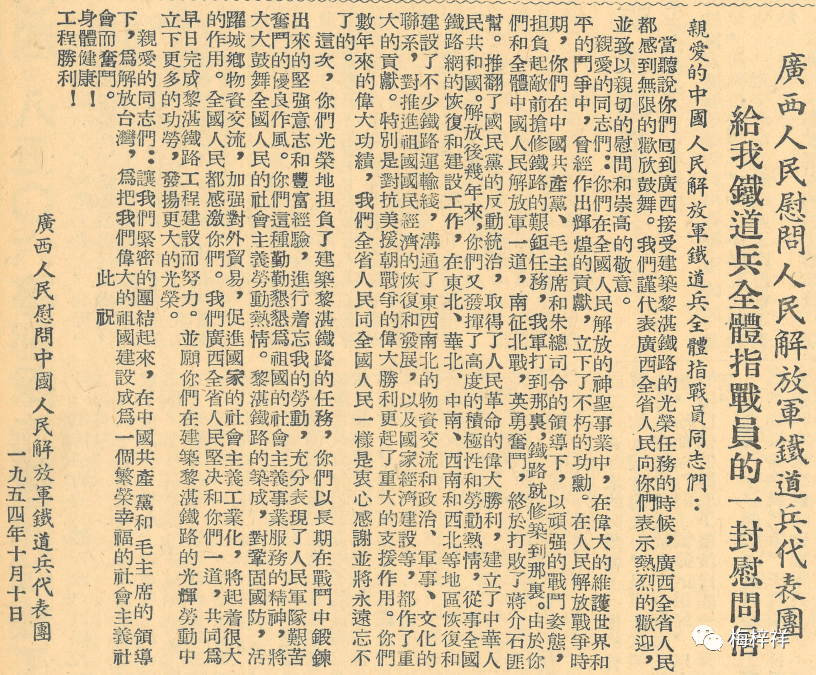 廣西人民慰問人民解放軍鐵道兵代表團
給我鐵道兵全體指戰員的一封慰問信
親愛的中國人民解放軍鐵道兵全體指戰員同志們：
當聽說你們囘到廣西接受建築黎湛鐵路的光榮任務的時候，廣西全省人民
都感到無限的歡欣鼓舞。我們謹代表廣西全省人民向你們表示熱烈的歡迎，
並致以親切的慰問和崇高的敬意。
親愛的同志們：你們在全國人民解放的神聖事業中，在偉大的維護世界和
平的鬥爭中，曾經作出輝煌的貢獻，立下了不朽的功勳。在人民解放戰爭時
期，你們在中國共產黨、毛主席和朱總司令的領導下，以頑强的戰鬥姿態，
担負起敵前搶修鐵路的艱鉅任務，我軍打到那裏，鐵路就修築到那裏。由於你
們和全體中國人民解放軍一道，南征北戰，英勇奮鬥，終於打敗了蔣介石匪
幫。推翻了國民黨的反動統治，取得了人民革命的偉大勝利，建立了中華人
民共和國。解放後幾年來，你們又發揮了高度的積極性和勞動熱情，從事全國
鐵路網的恢復和建設工作，在東北、華北、中南、西南和西北等地區恢復和
建設了不少鐵路運輸綫，溝通了東西南北的物資交流和政治、軍事、文化的
聯系，對推進祖國國民經濟的恢復和發展，以及國家經濟建設等，都作了重
大的貢獻。特別是對抗美援朝戰爭的偉大勝利更起了重大的支援作用。你們
數年來的偉大功績，我們全省人民同全國人民一樣是衷心感謝並將永遠忘不
了的。
這次，你們光榮地担負了建築黎湛鐵路的任務，你們以長期在戰鬥中鍛鍊
出來的堅強意志和豐富經驗，進行着忘我的勞動，充分表現了人民軍隊艱苦
奮鬥的優良作風。你們這種勤勤懇懇爲祖國的社會主義事業服務的精神，將
大大鼓舞全國人民的社會主義勞動熱情。黎湛鐵路的築成，對鞏固國防，活
躍城鄉物資交流，加强對外貿易，促進國家的社會主義工業化，將起着很大
的作用。全國人民都感激你們。我們廣西全省人民堅決和你們一道，共同爲
早日完成黎湛鐵路工程建設而努力。並願你們在建築黎湛鐵路的光輝勞動中
立下更多的功勞，發揚更大的光榮。
親愛的同志們：讓我們緊密的團結起來，在中國共產黨和毛主席的領導
下，爲解放台灣，爲把我們偉大的祖國建設成爲一個繁榮幸福的社會主義社
會而奮鬥。
此祝
身體健康！
工程勝利！
廣西人民慰問中國人民解放軍鐵道兵代表團
一九五四年十月十日
梅梓祥